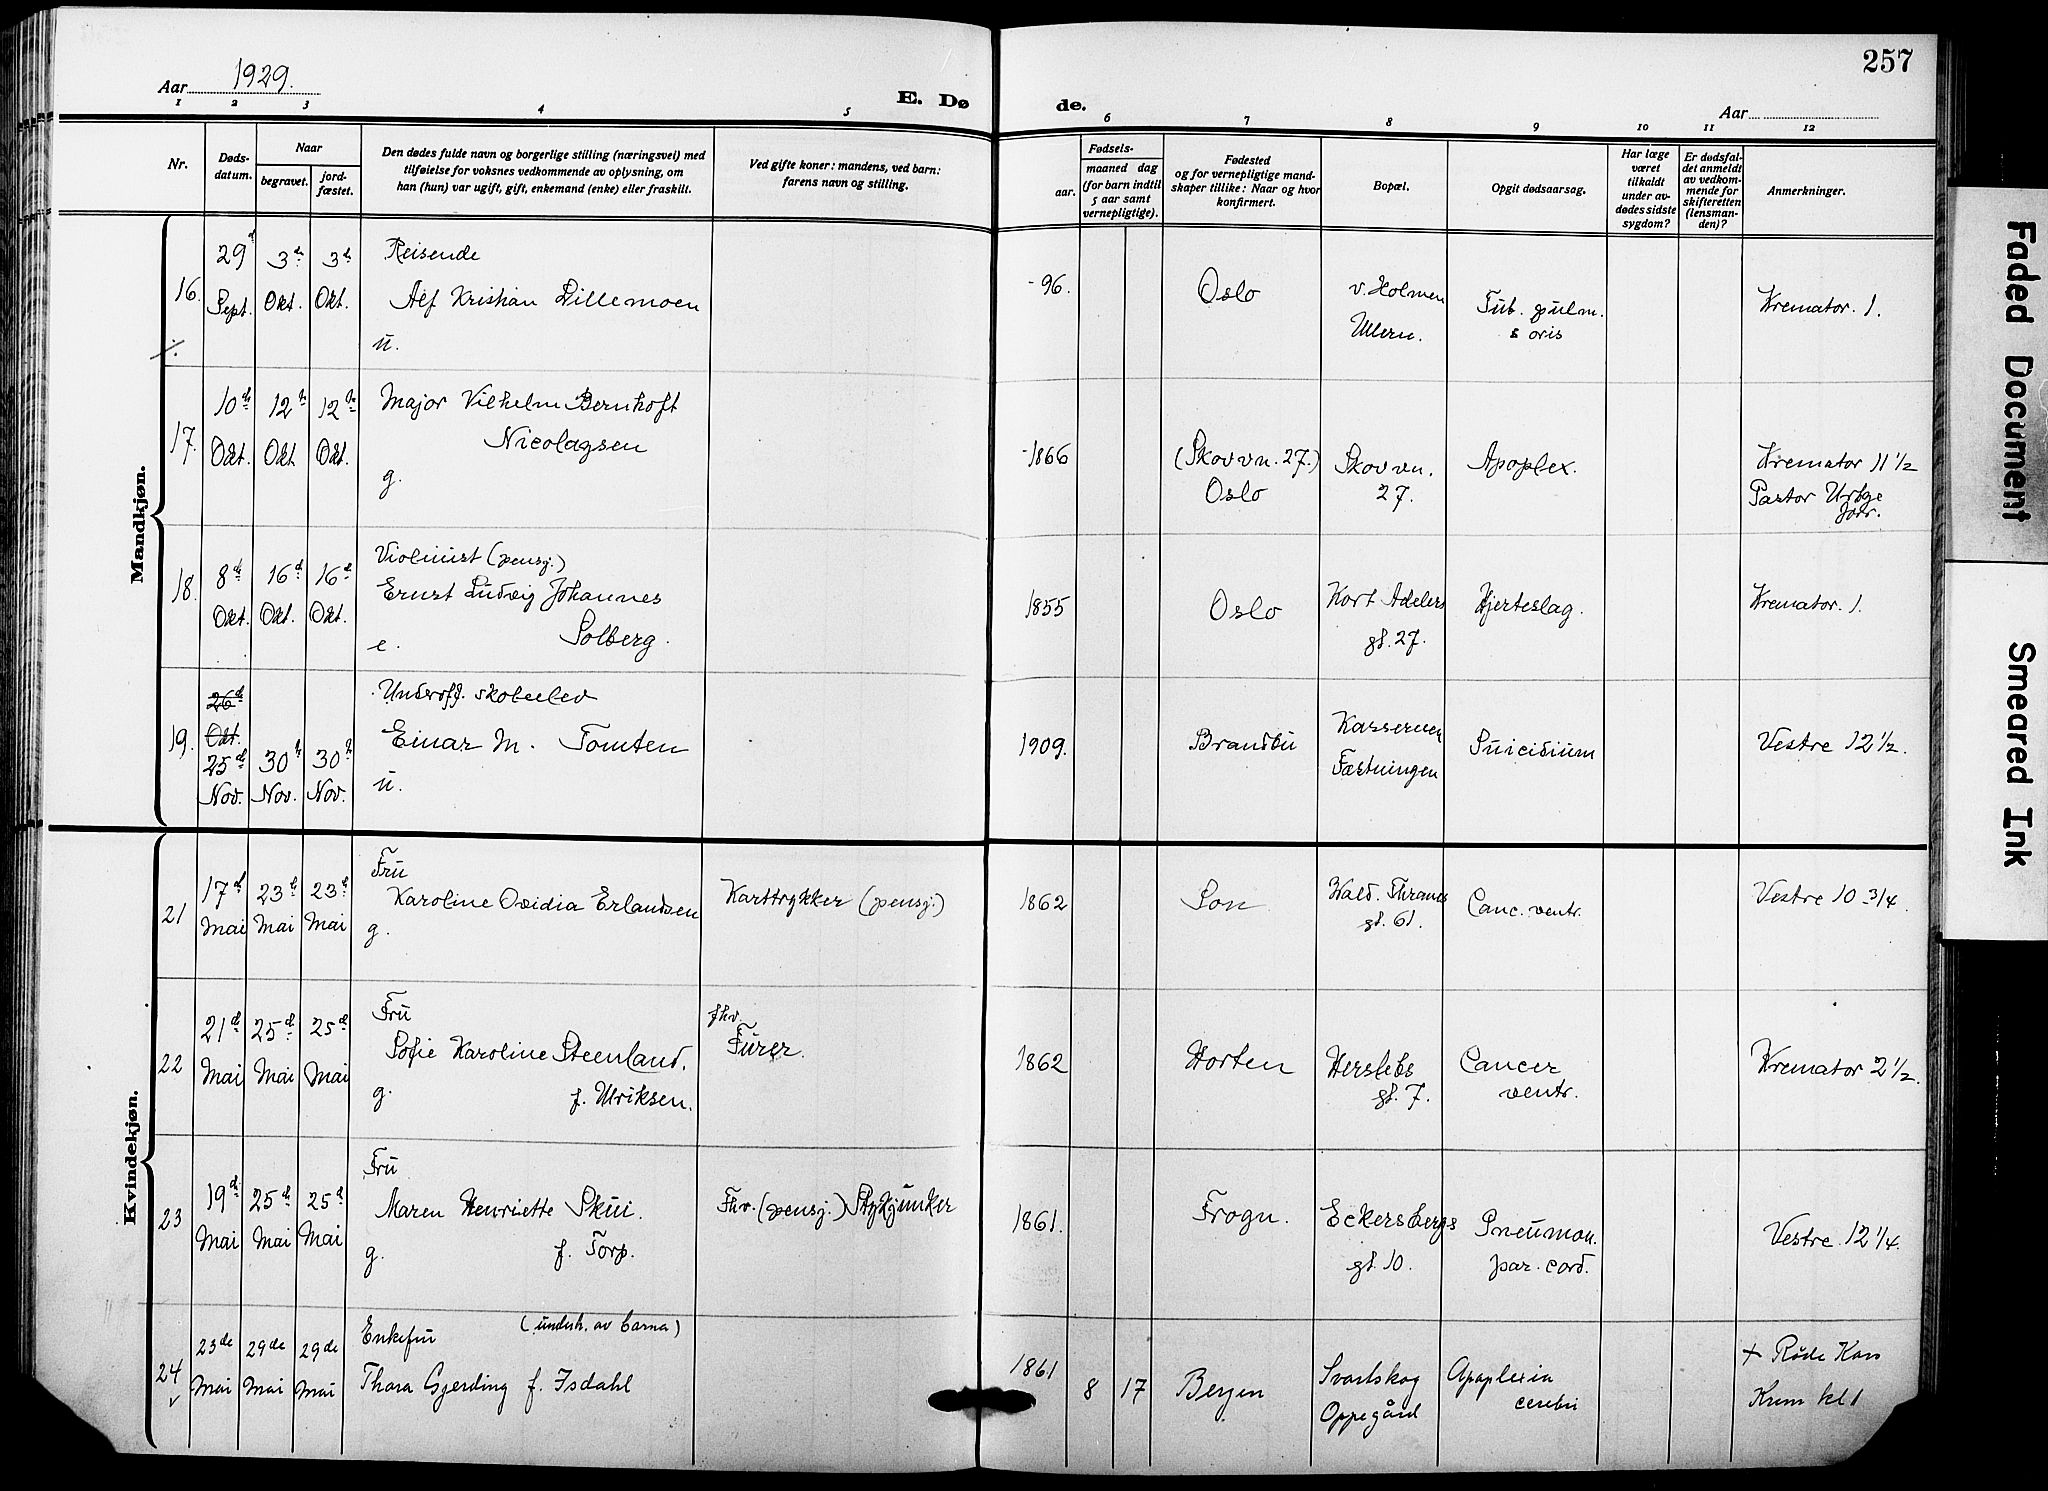 257
Aar 1929.
E. Dø
de.
Aar
1 2 3 4 5 6 7 8 9 10 11 12
Nr.
Døds-
datum.
Naar
begravet.
jord-
fæstet.
Den dødes fulde navn og borgerlige stilling (næringsvei) med
tilføielse for voksnes vedkommende av oplysning, om
han (hun) var ugift, gift, enkemand (enke) eller fraskilt.
Ved gifte koner: mandens, ved barn:
farens navn og stilling.
Fødsels-
aar.
maaned dag
(for barn indtil
5 aar samt
vernepligtige).
Fødested
og for vernepligtige mand-
skaper tillike: Naar og hvor
konfirmert.
Bopæl.
Opgit dødsaarsag.
Har læge
været
tilkaldt
under av-
dødes sidste
sygdom?
Er dødsfal-
det anmeldt
av vedkom-
mende for
skifteretten
(lensman-
den)?
Anmerkninger.
Mandkjøn.
16.
29d
Sept.
3d
Okt.
3d
Okt.
Reisende
Alf Kristian Lillemoen
u.
-96.
Oslo
v. Holmen
Ullern.
Tub. pulm.
& oris
Kremator. 1.
17.
10d
Okt.
12t
Okt.
12t
Okt.
Major Vilhelm Bernhoft
Nicolaysen
g.
-1866
(Skovvn. 27.)
Oslo
Skovvn.
27.
Apoplex.
Kremator 11 1/2
Pastor
18.
8d
Okt.
16d
Okt.
16d
Okt.
Violinist (pensj.)
Ernst Ludvig Johannes
Solberg.
e.
1855
Oslo
Kort Adelers
gt. 27.
Hjerteslag.
Kremator. 1.
19.
26d
Okt.
25d
Nov.
30t
Nov.
30t
Nov.
Underoff. skoleelev
Einar M. Tomten
u.
1909.
Brandbu
Kasernen
Fæstningen
Suicidium
Vestre 12 1/2.
Kvindekjøn.
21
17d
Mai
23d
Mai
23d
Mai
Fru
Karoline Ovidia Erlandsen
g.
Karttrykker (pensj.)
1862
Son
Wald. Thranes
gt. 61.
Canc. ventr.
Vestre 10 3/4.
22
21d
Mai
25d
Mai
25d
Mai
Fru
Sofie Karoline Steenland.
g. f. Ulriksen.
fhv.
Furer.
1862
Horten
Herslebs
gt. 7.
Cancer
ventr.
Kremator 2 1/2.
23
19d
Mai
25d
Mai
25d
Mai
Fru
Maren Henriette Skui.
g. f. Torp.
Fhv. (pensj.) Stykjunker
1861.
Frogn.
Eckersbergs
gt. 10.
Pneumon.
par. cord.
Vestre 12 1/4.
24
23de
Mai
29de
Mai
29de
Mai
Enkefru (undh. av barna)
Thora Gjerding f. Isdahl
1861
8
17
Bergen
Svartskog
Oppegård
Apoplexia
cerebri
+ Røde Kors
Krem kl 1
Faded Document
Smeared Ink